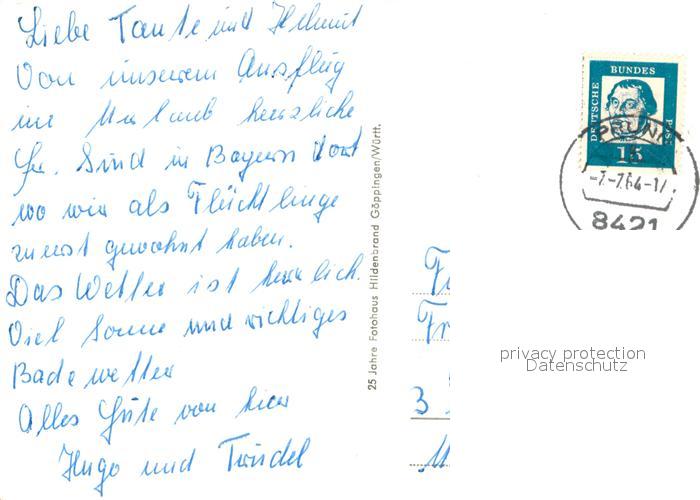 Liebe Tante und Helmut
Von unserem Ausflug
im Urlaub herzliche
Gr. Sind in Bayern dort
wo wir als Flüchtlinge
zuerst gewohnt haben.
Das Wetter ist herrlich.
Viel Sonne und richtiges
Badewetter
Alles Gute von hier
Hugo und Trudel
25 Jahre Fotohaus Hildenbrand Göppingen/Württ.
DEUTSCHE BUNDES POST
15
PRUNN
-7.-7.64-17
8421
Fr
3
privacy protection
Datenschutz